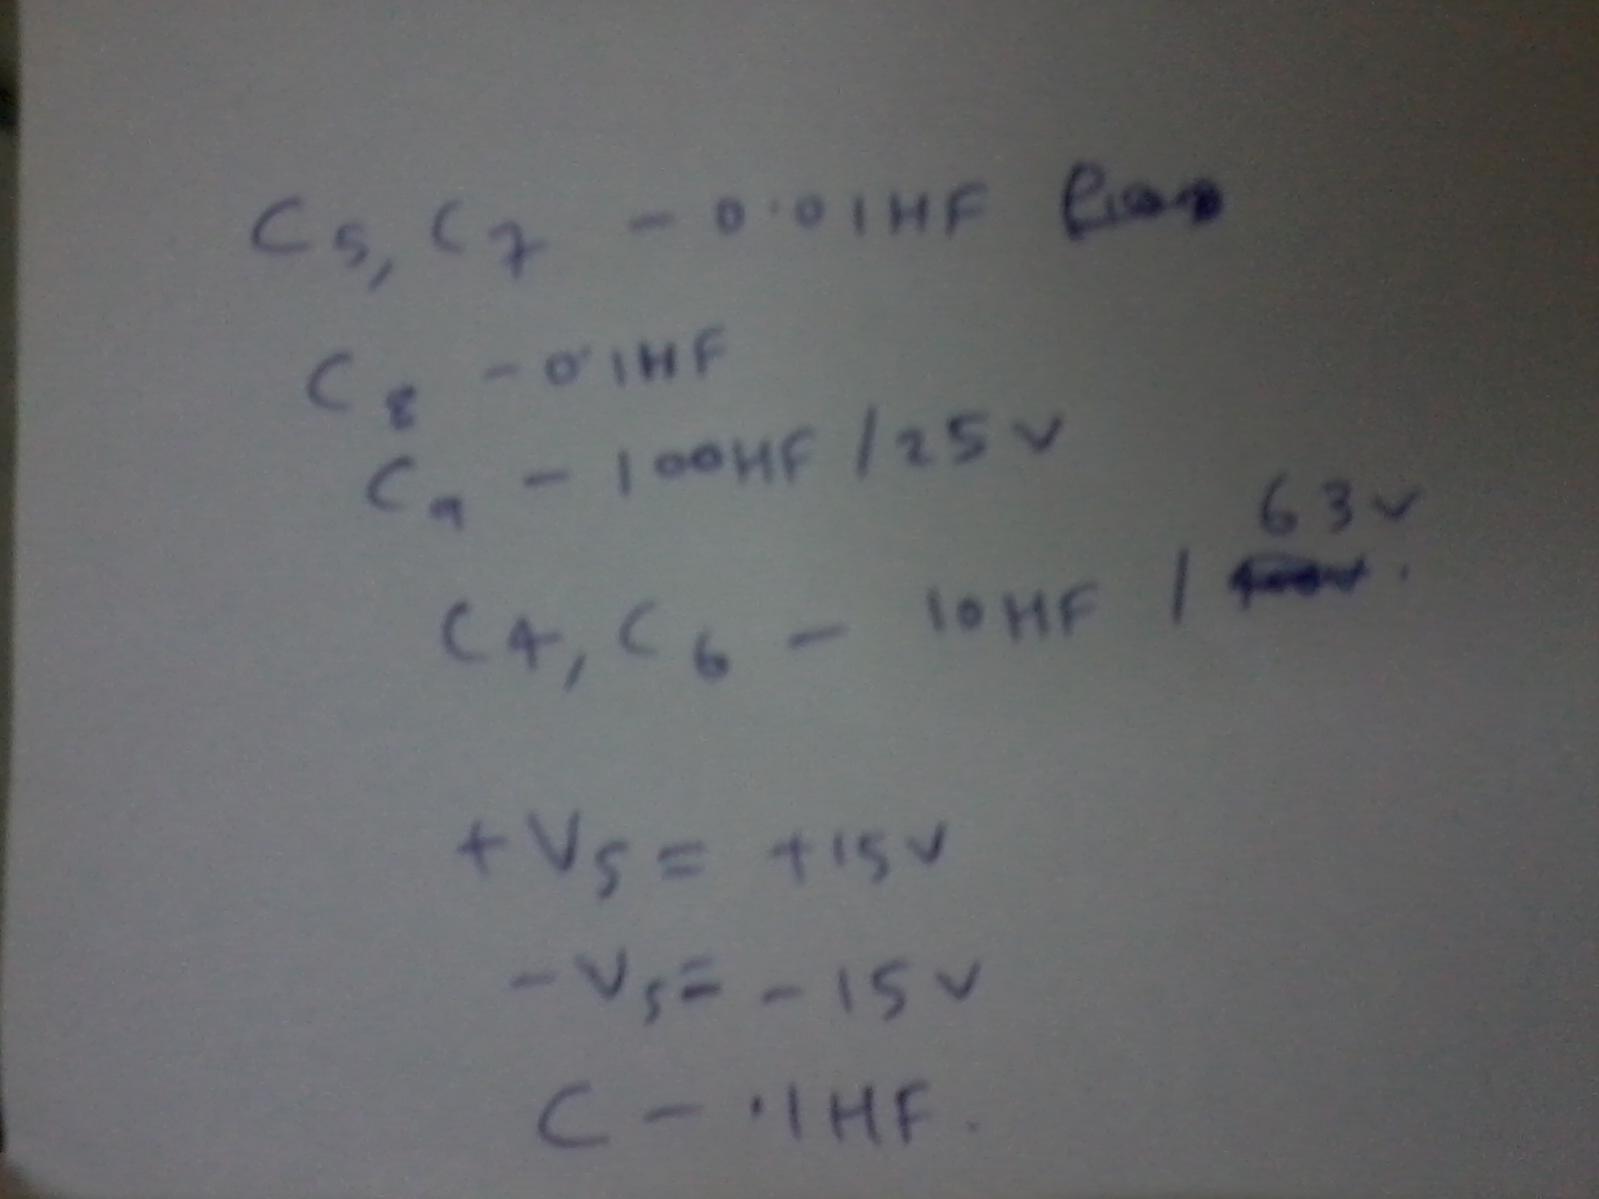 C5, C7 - 0.01HF
C8 - 0.1HF
C9 - 100HF / 25V
63V
C4, C6 - 10HF /
+Vs = +15V
-Vs = -15V
C - .1HF.